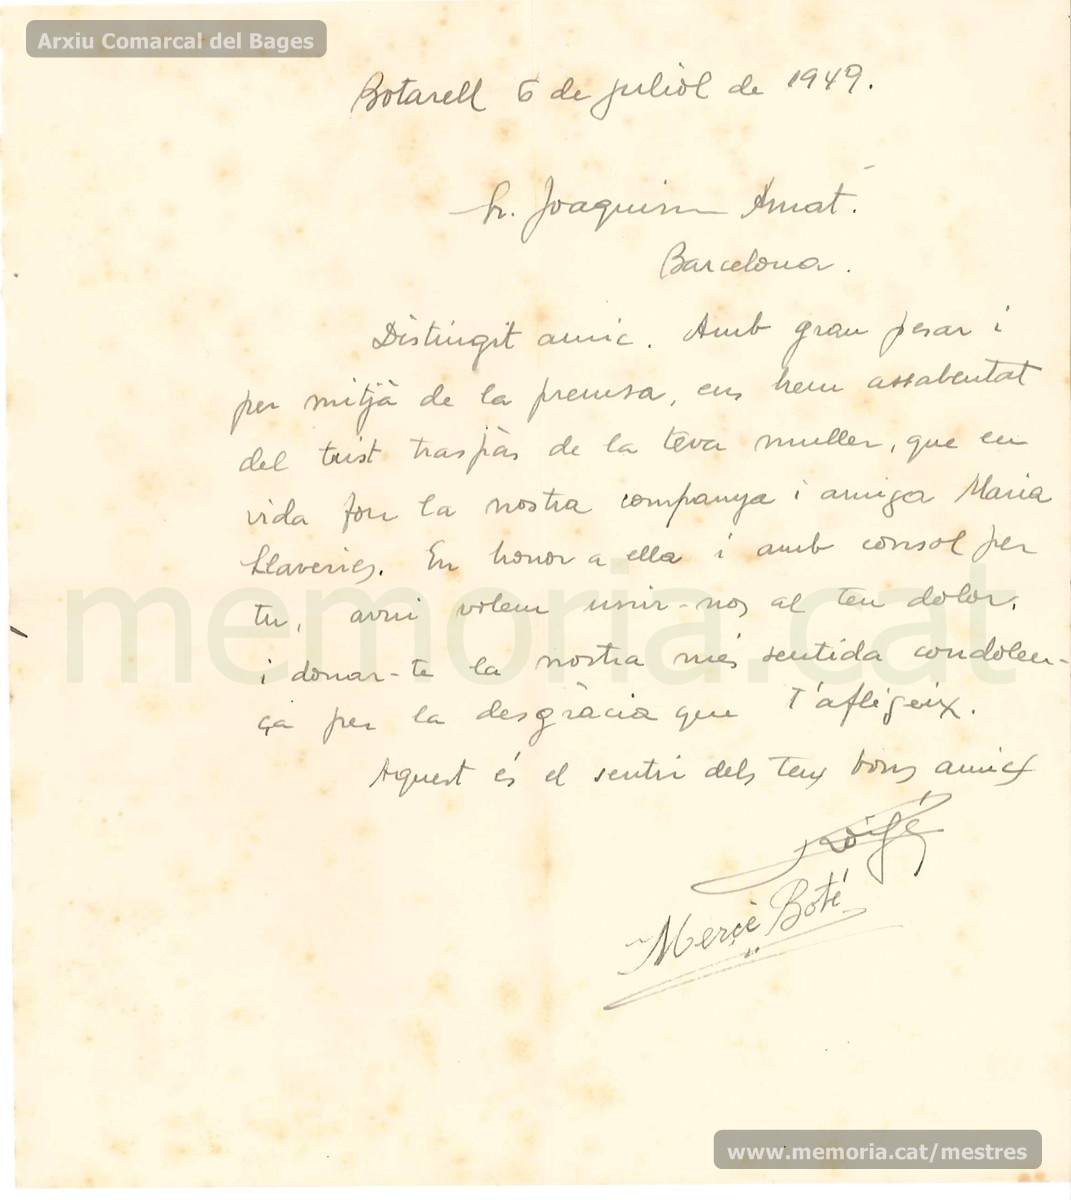 Arxiu Comarcal del Bages
Botarell 6 de juliòl de 1949.
Sr. Joaquim Amat.
Barcelona.
Distingit amic. Amb gran pesar i
per mitjà de la premsa, ens hem assabentat
del trist traspàs de la teva muller, que en
vida fou la nostra companya i amiga Maria
Llaveries. En honor a ella i amb consol per
tu, avui volem unir-nos al teu dolor,
i donar-te la nostra més sentida condolen-
ça per la desgràcia que t'afligeix.
Aquest és el sentir dels teus bons amics
Mercè Boté
memoria.cat
www.memoria.cat/mestres